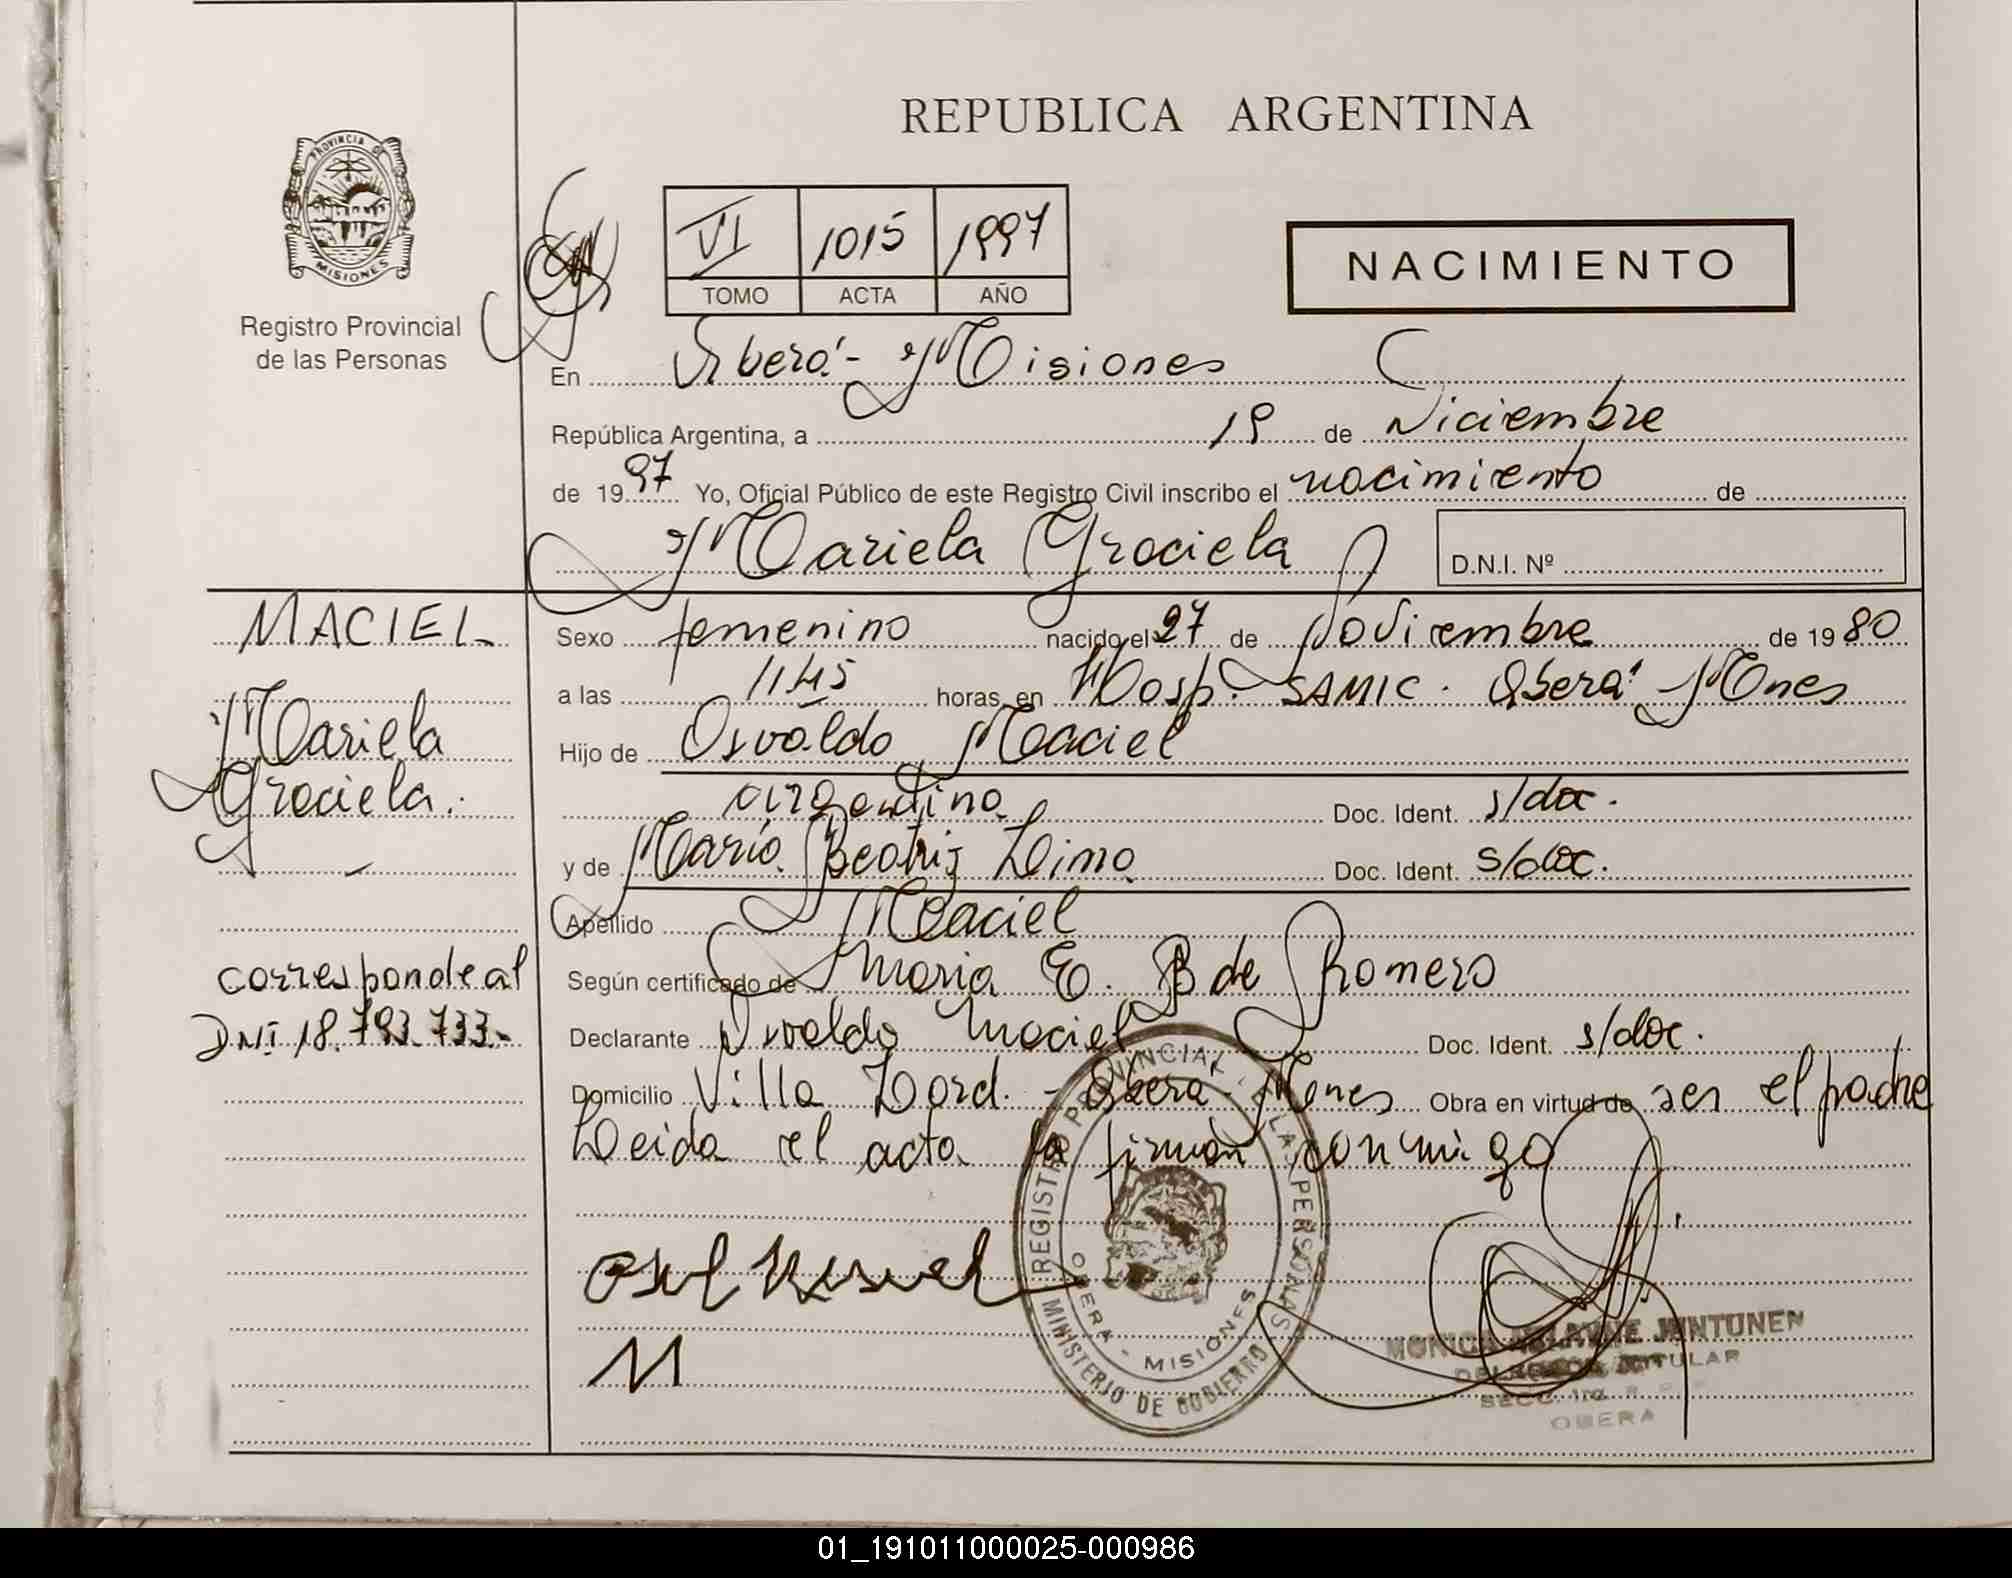 REPUBLICA ARGENTINA
PROVINCIA DE
MISIONES
Registro Provincial
de las Personas
VI 1015 1997
TOMO ACTA AÑO
NACIMIENTO
En Oberá - Misiones
República Argentina, a 19 de Diciembre
de 1997 Yo, Oficial Público de este Registro Civil inscribo el nacimiento de
Mariela Graciela
D.N.I. Nº
MACIEL
Mariela
Graciela.
corresponde al
DNI 18.793.733-
Sexo femenino nacido el 27 de Noviembre de 1980
a las 11:45 horas, en Hosp. SAMIC. Oberá Mnes
Hijo de Osvaldo Maciel
argentino Doc. Ident. s/doc.
y de María Beatriz Lima Doc. Ident. s/doc.
Apellido Maciel
Según certificado de Maria E. B de Romero
Declarante Osvaldo Maciel Doc. Ident. s/doc.
Domicilio Villa Lord. - Oberá - Mnes Obra en virtud de ser el padre
Leida el acta la firman conmigo
REGISTRO PROVINCIAL DE LAS PERSONAS
OBERA - MISIONES
MINISTERIO DE GOBIERNO
M
MONICA JUNTUNEN
TITULAR
SECC. 1ra
OBERA
01_191011000025-000986